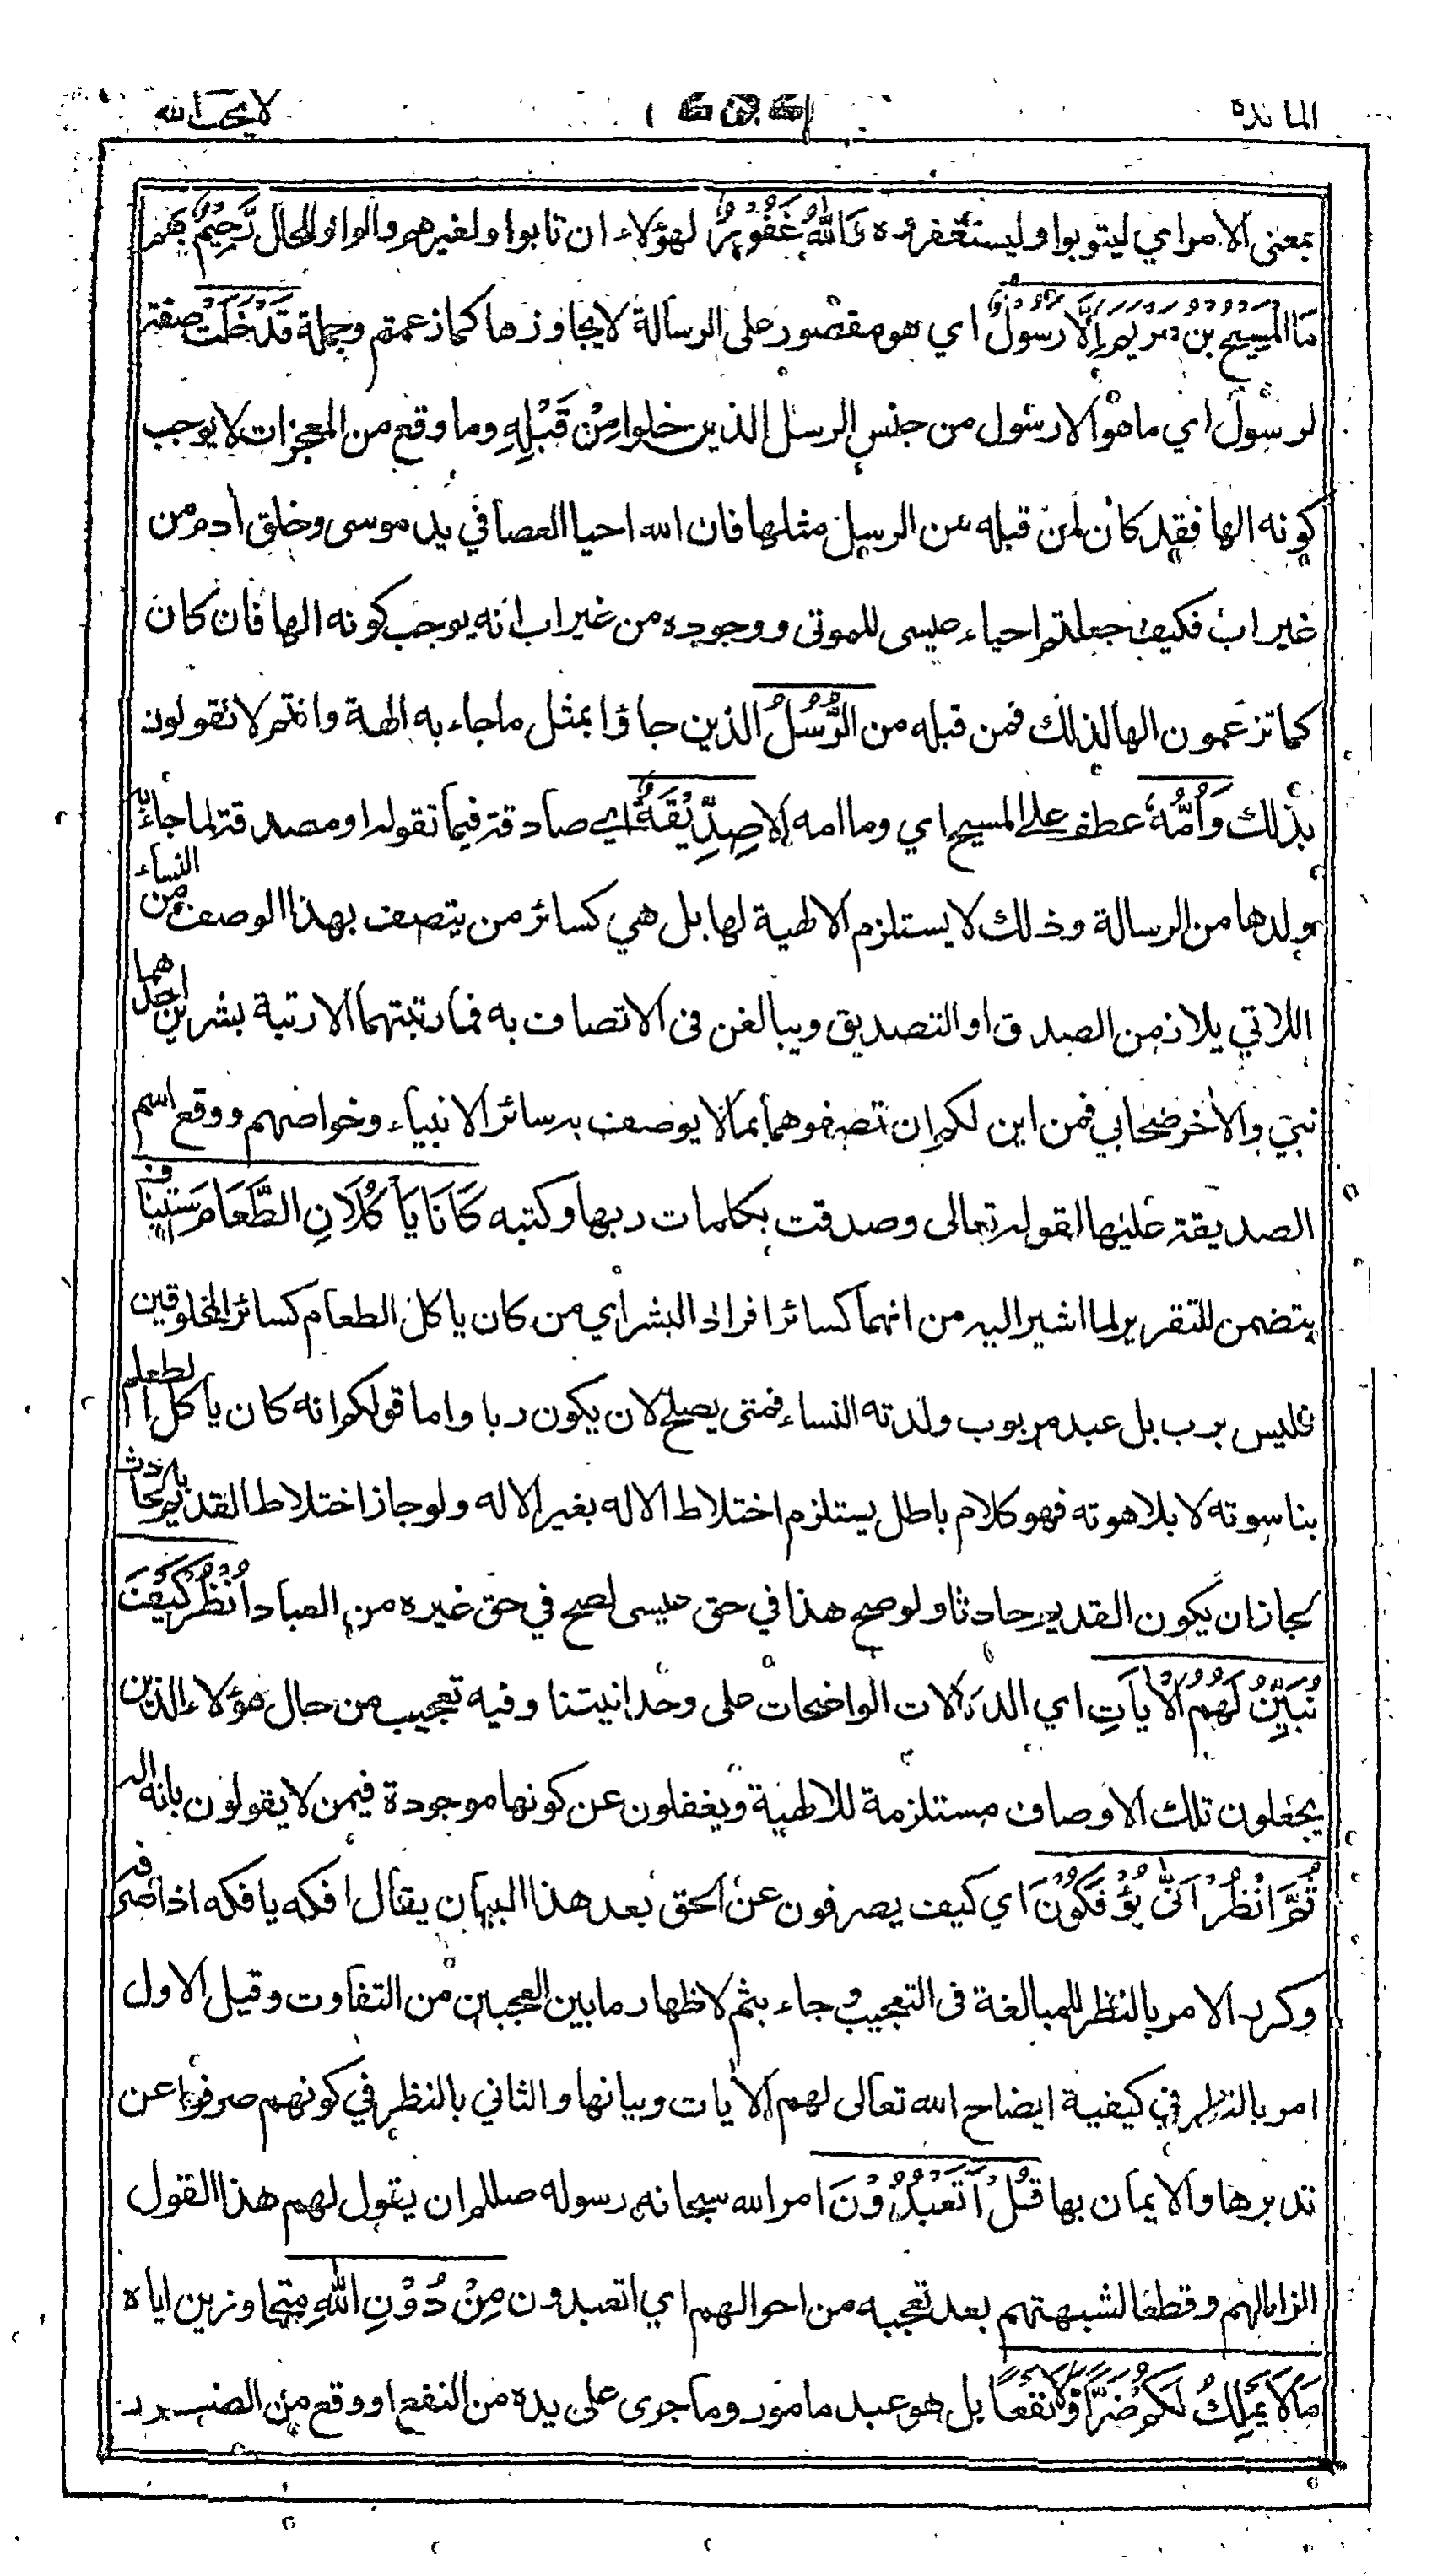 المائدة لا يحب الله
بمعنى الامر اي ليتوبوا وليستغفروه وَاللّٰهُ غَفُوْرٌ لهؤلاء ان تابوا ولغيرهم والواو للحال رَّحِيْمٌ بهم
مَا الْمَسِيْحُ بْنُ مَرْيَمَ اِلَّا رَسُوْلٌ اي هو مقصور على الرسالة لا يجاوزها كما زعمتم وجملة قَدْ خَلَتْ صفة
لرسول اي ما هو الا رسول من جنس الرسل الذين خلوا مِنْ قَبْلِهِ وما وقع من المعجزات لا يوجب
كونه الها فقد كان لمن قبله من الرسل مثلها فان الله احيا العصا في يد موسى وخلق أدم من
غير اب فكيف جعلتم احياء عيسى للموتى ووجوده من غير اب انه يوجب كونه الها فان كان
كما تزعمون الها لذلك فمن قبله من الرُّسُلُ الذين جاؤا بمثل ما جاء به الهة وانتم لا تقولون
بذلك وَاُمُّهُ عطف على المسيح اي وما امه الا صِدِّيْقَةٌ اي صادقة فيما تقوله او مصدقة لما جاء به
ولدها من الرسالة وذلك لا يستلزم الالهية لها بل هي كسائر من يتصف بهذا الوصف من النساء
اللاتي يلازمن الصدق او التصديق ويبالغن في الاتصاف به فما رتبتهما الا رتبة بشرين احدهما
نبي والأخر صحابي فمن اين لكم ان تصفوهما بما لا يوصف به سائر الانبياء وخواصهم ووقع اسم
الصديقة عليها لقوله تعالى وصدقت بكلمات ربها وكتبه كَانَا يَأْكُلَانِ الطَّعَامَ
يتضمن للتقرير لما اشير اليه من انهما كسائر افراد البشر اي من كان يأكل الطعام كسائر المخلوقين
فليس برب بل عبد مربوب ولدته النساء فمتى يصلح لان يكون ربا واما قولكم انه كان يأكل الطعام
بناسوته لا بلاهوته فهو كلام باطل يستلزم اختلاط الاله بغير الاله ولو جاز اختلاط القديم بالحادث
لجاز ان يكون القديم حادثا ولو صح هذا في حق عيسى لصح في حق غيره من العباد اُنْظُرْ كَيْفَ
نُبَيِّنُ لَهُمُ الْاٰيَاتِ اي الدلالات الواضحات على وحدانيتنا وفيه تعجيب من حال هؤلاء الذين
يجعلون تلك الاوصاف مستلزمة للالهية ويغفلون عن كونها موجودة فيمن لا يقولون بانه اله
ثُمَّ انْظُرْ اَنّٰى يُؤْفَكُوْنَ اي كيف يصرفون عن الحق بعد هذا البيان يقال افكه يافكه اذا صرفه
وكرر الامر بالنظر للمبالغة في التعجيب وجاء بثم لاظهار ما بين العجبين من التفاوت وقيل الاول
امر بالنظر في كيفية ايضاح الله تعالى لهم الأيات وبيانها والثاني بالنظر في كونهم صرفوا عن
تدبرها والايمان بها قُلْ اَتَعْبُدُوْنَ امر الله سبحانه رسوله صللم ان يقول لهم هذا القول
الزاما لهم وقطعا لشبهتهم بعد تعجبه من احوالهم اي اتعبدون مِنْ دُوْنِ اللّٰهِ متجاوزين اياه
مَا لَا يَمْلِكُ لَكُمْ ضَرًّا وَّلَا نَفْعًا بل هو عبد مامور وما جرى على يده من النفع او وقع من الضرر